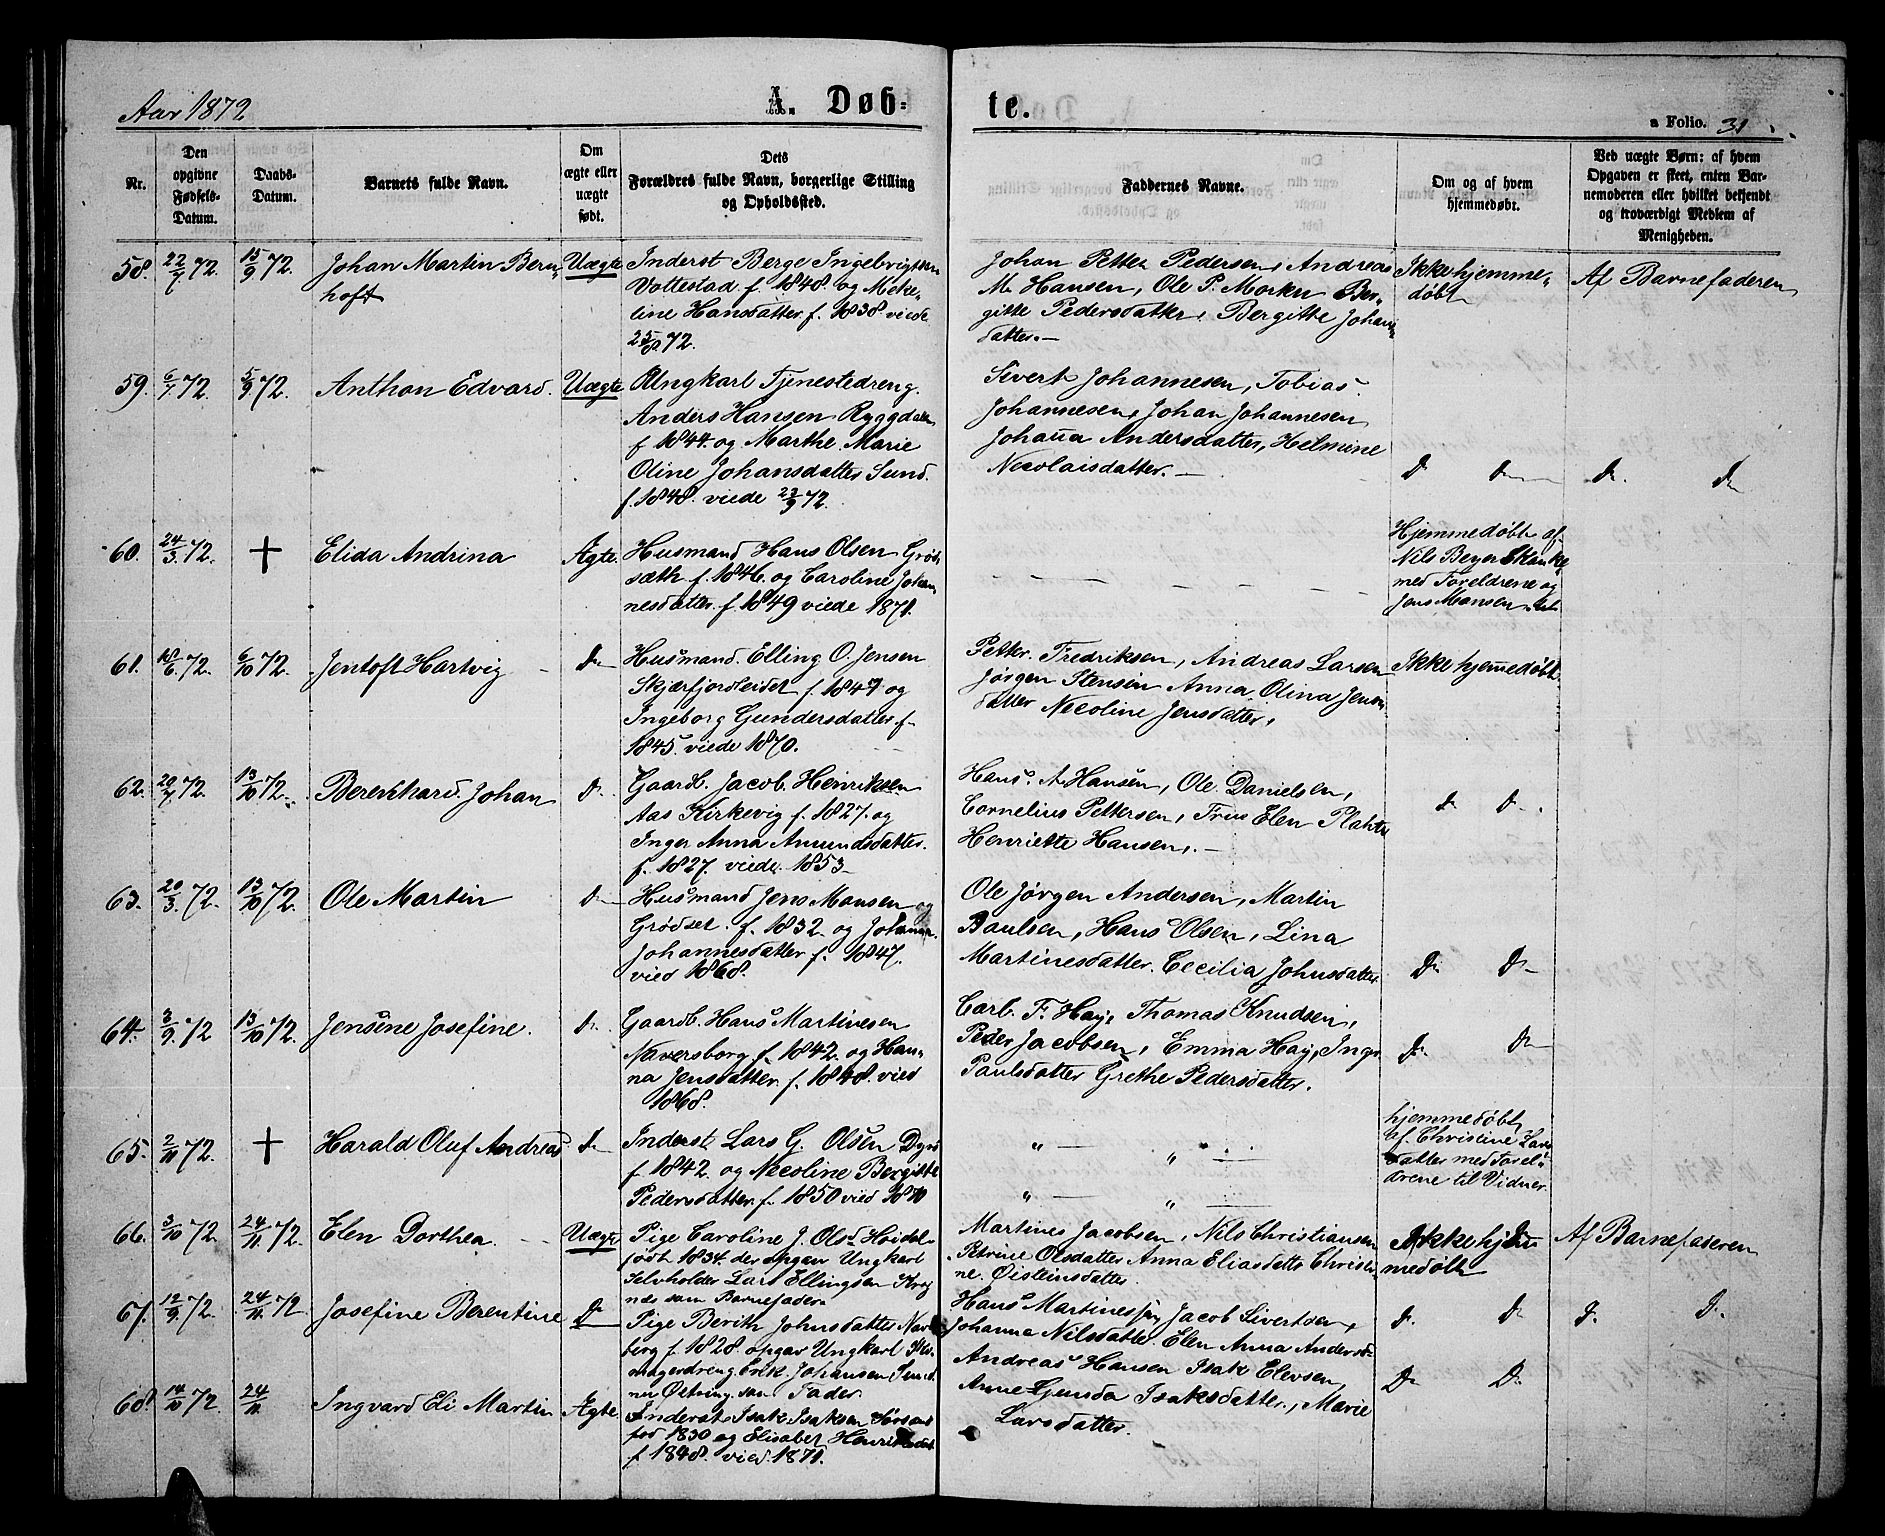 Aar 1872
A. Døb-
te.
a Folio. 31
Nr.
Den
opgivne
Fødsels-
Datum.
Daabs-
Datum.
Barnets fulde Navn.
Om
ægte eller
uægte
født.
Dets
Forældres fulde Navn, borgerlige Stilling
og Opholdssted.
Faddernes Navne.
Om og af hvem
hjemmedøbt.
Ved uægte Børn: af hvem
Opgaven er skeet, enten Bar-
nemoderen eller hvilket bekjendt
og troværdigt Medlem af
Menigheden.
58. 22/7 72. 15/9 72. Johan Martin Bern-
hoft
Uægte
Inderst Berge Ingebrigtsen
Vottestad f. 1848 og Meke-
line Hansdatter f. 1838 viede
25/8 72.
Johan Petter Pedersen, Andreas
M. Hansen, Ole P. Morken Ber-
gitte Pedersdatter, Bergitte Johans-
datter.
Ikke hjemme-
døbt
Af Barnefaderen
59. 6/7 72. 5/9 72. Anthon Edvard.
Uægte
Ungkarl Tjenestedreng.
Anders Hansen Ryggdalen
f 1844. og Marthe Marie
Oline Johansdatter Sund.
f. 1848. viede 23/9 72.
Sivert Johannesen, Tobias
Johannesen, Johan Johannesen
Johanna Andersdatter, Helmine
Necolaisdatter. —
D D
D. D
60. 24/3. 72. † Elida Andrina
Ægte.
Husmand Hans Olsen Grød-
sæth f. 1846. og Caroline Johan-
nesdatter f. 1849 viede 1871.
Hjemmedøbt af
Nils Beyer Skanke
med Foreldrene og
Jens Monsen
61. 18/6. 72. 6/10 72. Jentoft Hartvig
D
Husmand. Elling O. Jensen
Skjærfjordeidet f. 1847 og
Ingeborg Gundersdatter f.
1845. viede 1870.
Petter. Fredriksen, Andreas Larsen
Jørgen Stensen Anna Olina Jens-
datter Necoline Jensdatter,
Ikke hjemmedøbt
62. 20/7. 72. 13/10 72. Berenhard Johan
D.
Gaardb. Jacob Henriksen
Aas Kirkevig f. 1827. og
Inger Anna Amundsdatter.
f. 1827. viede 1853
Hans. A Hansen, Ole Danielsen,
Cornelius Pettersen, Frue Elen Plahte
Henriette Hansen, —
D D.
63. 20/3. 72. 13/10 72. Ole Martin
D
Husmand Jens Monsen
Grødset. f. 1832 og Johanna
Johannesdatter f. 1847.
vied 1868.
Ole Jørgen Andersen, Martin
Paulsen, Hans Olsen, Lina
Martinesdatter. Cecilia Johnsdatter
D D
64. 3/9. 72 13/10 72. Jensine Josefine.
D.
Gaardb. Hans Martinesen
Naversborg f. 1842. og Han-
na Jensdatter f. 1848. vied
1868.
Carl. F. Hay, Thomas Knudsen,
Peder Jacobsen, Emma Hay, Inger
Paulsdatter Grethe Pedersdatter.
D. D
65. 2/11 72. † Harald Oluf Andreas
D
Inderst Lars G. Olsen
f 1842. og Necoline Bergitte
Pedersdatter f. 1850 vied 1870
hjemmedøbt
af. Christine Lars-
datter med Forel-
drene til Vidner.
66. 3/10 72. 24/11. 72. Elen Dorthea.
Uægte
Pige Caroline J. Olsd.
født 1834. der opgav Ungkarl
Selvholder Lars Ellingsen
som Barnefader
Martines Jacobsen, Nils Christiansen
Petrine Olsdatter Anna Eliasdatter Christi-
ne. Øisteinsdatter.
Ikke hjem-
medøbt
Af Barnefaderen
67. 12/9. 72. 24/11. 72 Josefine Berentine
D
Pige Berith Johnsdatter
berg f. 1828. opgav Ungkarl
Johansen
som Fader.
Hans Martinessen Jacob Sivertsen,
Johanna Nilsdatter. Elen Anna Andersd-
D. D
D. D.
68. 14/10 72. 24/11. Ingvard Eli Martin
Ægte
Inderst Isak Isaksen
fød 1830 og Elisabet
f 1848. vied. 1871.
Andreas Hansen Isak Elevsen,
Anne Gjurda Isaksdatter, Marie
Larsdatter.
D D.